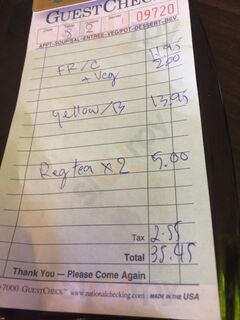 GUESTCHECK
8 2 09720
APPT-SOUP/SAL-ENTREE-VEG/POT-DESSERT-BEV
FR/C 11.95
+ veg 2.00
yellow/B 13.95
Reg tea x 2 5.00
Tax 2.55
Total 35.45
Thank You — Please Come Again
7000 GUESTCHECK™ www.nationalchecking.com MADE IN THE USA